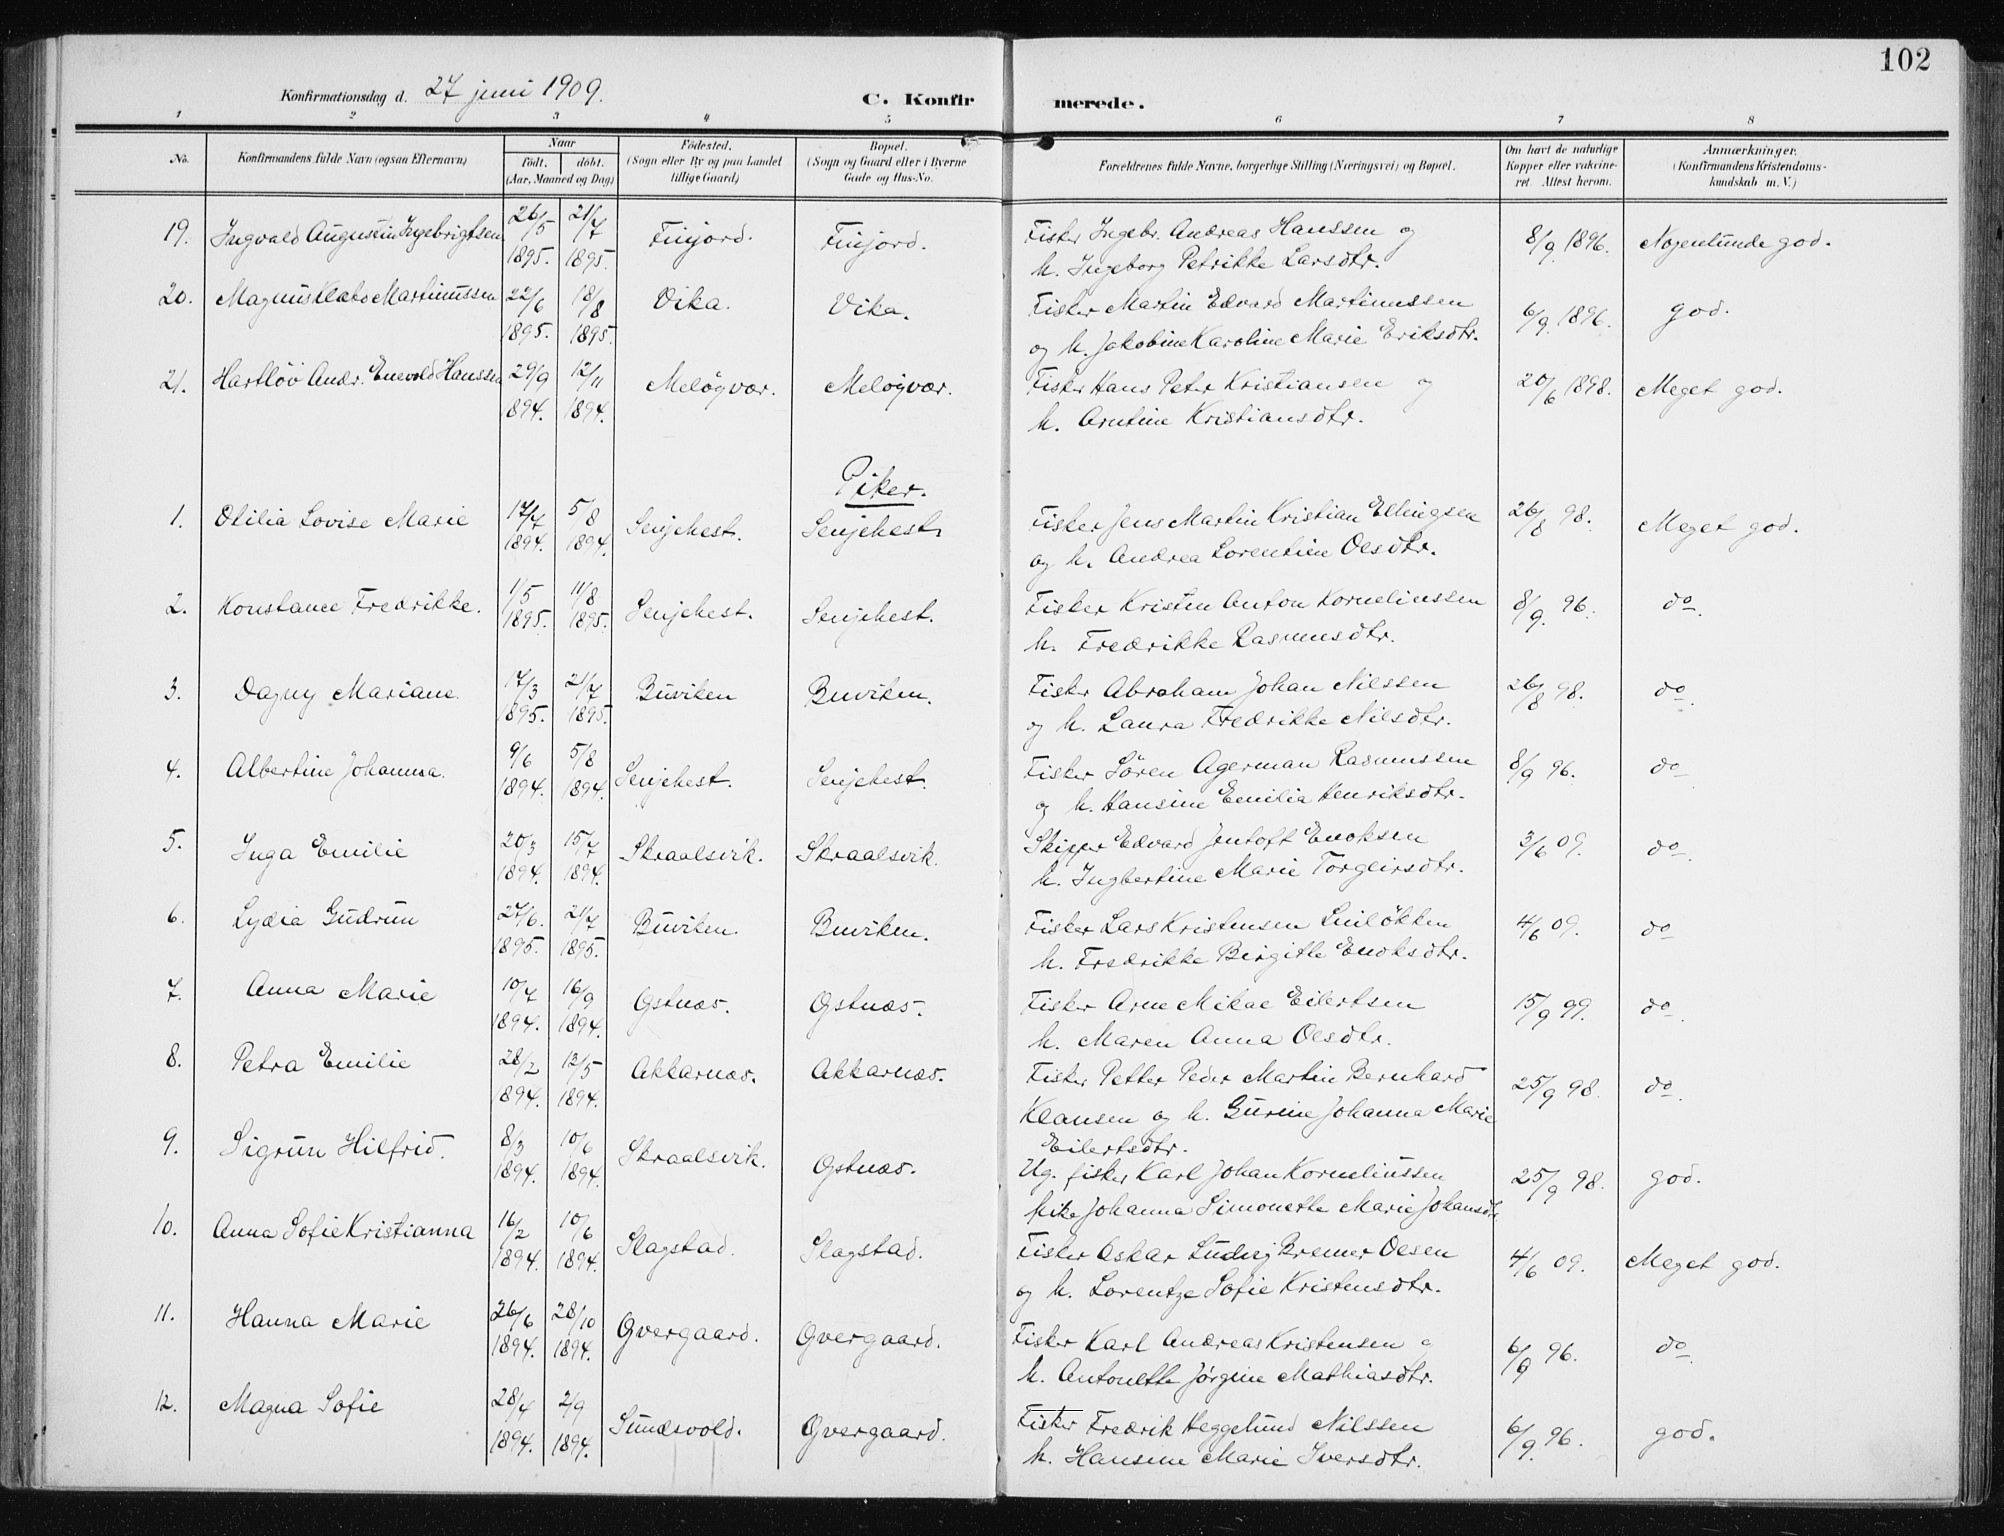 102
Konfirmationsdag d. 27 juni 1909.
C. Konfirmerede.
1 2 3 4 5 6 7 8
No. Konfirmandens fulde Navn (ogsaa Efternavn) Naar født, døbt. (Aar, Maaned og Dag) Fødested. (Sogn eller By og paa Landet tillige Gaard) Bopæl. (Sogn og Gaard eller i Byerne Gade og Hus-No. Forældrenes fulde Navne, borgerlige Stilling (Næringsvei) og Bopæl. Om havt de naturlige Kopper eller vakcineret. Attest herom. Anmærkninger. (Konfirmandens Kristendomskundskab m. V.)
19. Ingvald Augustin Ingebrigtsen 26/5 1895. 21/7 1895. Finjord. Finjord. Fisker Ingebr. Andreas Hanssen og h. Ingeborg Petrikke Larsdtr. 8/9 1896. Nogenlunde god.
20. Magnus Klabo Martinussen 22/6 1895. 18/8 1895. Vika. Vika. Fisker Martin Edvard Martinussen og h. Jakobine Karoline Marie Eriksdtr. 6/9 1896. god.
21. Hartløv Andr. Enevold Hanssen 29/9 1894. 12/11 1894. Meløyvær. Meløyvær. Fisker Hans Peter Kristiansen og h. Arntine Kristiansdtr. 20/6 1898. Meget god.
Piker.
1. Otilia Lovise Marie 17/7 1894. 5/8 1894. Senjehest. Senjehest. Fisker Jens Martin Kristian Ellingsen og h. Andrea Lorentine Olsdtr. 26/8 98. Meget god.
2. Konstance Fredrikke. 1/5 1895. 11/8 1895. Senjehest. Senjehest. Fisker Kristen Anton Korneliussen h. Fredrikke Rasmusdtr. 8/9. 96. do.
3. Dagny Mariane. 17/3 1895. 21/7 1895. Buviken Buviken. Fisker Abraham Johan Nilssen og h. Laura Fredrikke Nilsdtr. 26/8 98. do.
4. Albertine Johanna. 9/6 1894. 5/8 1894. Senjehest. Senjehest. Fisker Sören Agerman Rasmussen og h. Hansine Emilia Henriksdtr. 8/9 96. do
5. Inga Emilie 20/3 1894. 15/7 1894. Skraalsvik. Skraalsvik. Skipper Edvard Jentoft Enoksen h. Ingbertine Marie Torgeirsdtr. 3/6 09. do.
6. Lydia Gudrun 27/6. 1895. 21/7 1895. Buviken. Buviken. Fisker Lars Kristensen Lilløkken h. Fredrikke Birgitte Enoksdtr. 4/6 09. do
7. Anna Marie 10/7 1894. 16/9 1894. Østnæs. Østnæs. Fisker Arne Mikal Eilertsen h. Maren Anna Olsdtr. 15/9 99. do.
8. Petra Emilie 28/2 1894. 13/5 1894. Akkarnæs. Akkarnæs. Fisker Petter Peder Martin Bernhard Klausen og h. Gurine Johanna Marie Eilertsdtr. 25/9 98. do.
9. Sigrun Hilfrid. 8/3 1894. 10/6 1894. Skraalsvik. Østnæs. Ug. fisker Karl Johan Korneliussen Pike Johanna Simonette Marie Johansdtr 25/9 98. god.
10. Anna Sofie Kristianna 16/2 1894. 10/6 1894. Slagstad. Slagstad. Fisker Oskar Ludvig Bremer Olsen og h. Lorentze Sofie Kristensdtr. 4/6 09. Meget god.
11. Hanna Marie 26/6 1894. 28/10 1894. Øvergaard. Øvergaard. Fisker Karl Andreas Kristensen og h. Antonette Jørgine Mathiasdtr. 6/9 96. do.
12. Magna Sofie 28/4 1894. 2/9 1894. Sundsvold. Øvergaard. Fisker Fredrik Heggelund Nilssen h. Hansine Marie Iversdtr. 6/9. 96. god.